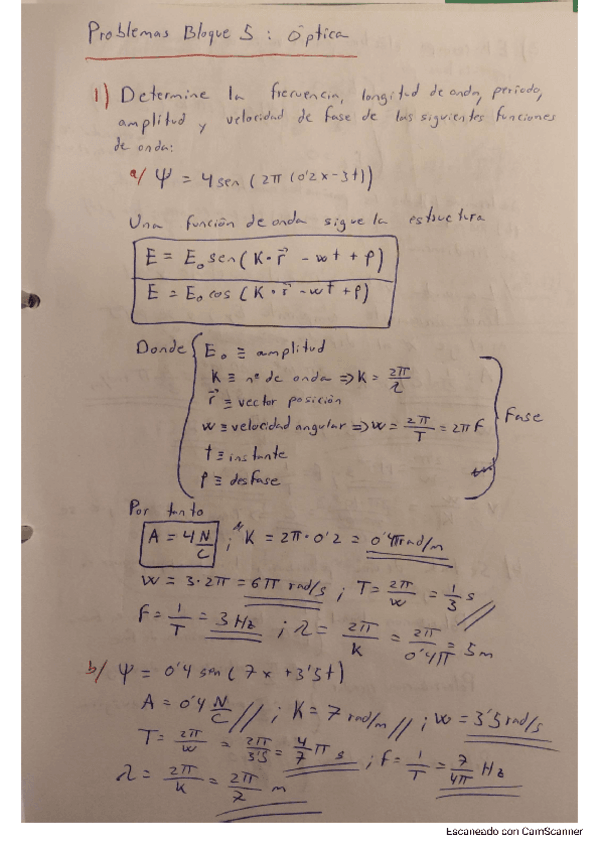 Problemas Bloque 5: Óptica
1) Determine la frecuencia, longitud de onda, periodo,
amplitud y velocidad de fase de las siguientes funciones
de onda:
a/ Ψ = 4 sen (2π (0'2x - 3t))
Una función de onda sigue la estructura
E = E₀ sen (K · r⃗ - wt + ρ)
E = E₀ cos (K · r⃗ - wt + ρ)
Donde
E₀ ≡ amplitud
K ≡ nº de onda ⇒ K = 2π/λ
r⃗ ≡ vector posición
w ≡ velocidad angular ⇒ w = 2π/T = 2πF
t ≡ instante
ρ ≡ desfase
Fase
Por tanto
A = 4 N/C ; K = 2π · 0'2 = 0'4π rad/m
w = 3 · 2π = 6π rad/s ; T = 2π/w = 1/3 s
F = 1/T = 3 Hz ; λ = 2π/K = 2π/0'4π = 5 m
b/ Ψ = 0'4 sen (7x + 3'5t)
A = 0'4 N/C // ; K = 7 rad/m // ; w = 3'5 rad/s
T = 2π/w = 2π/3'5 = 4/7 π s ; F = 1/T = 7/4π Hz
λ = 2π/K = 2π/7 m
Escaneado con CamScanner